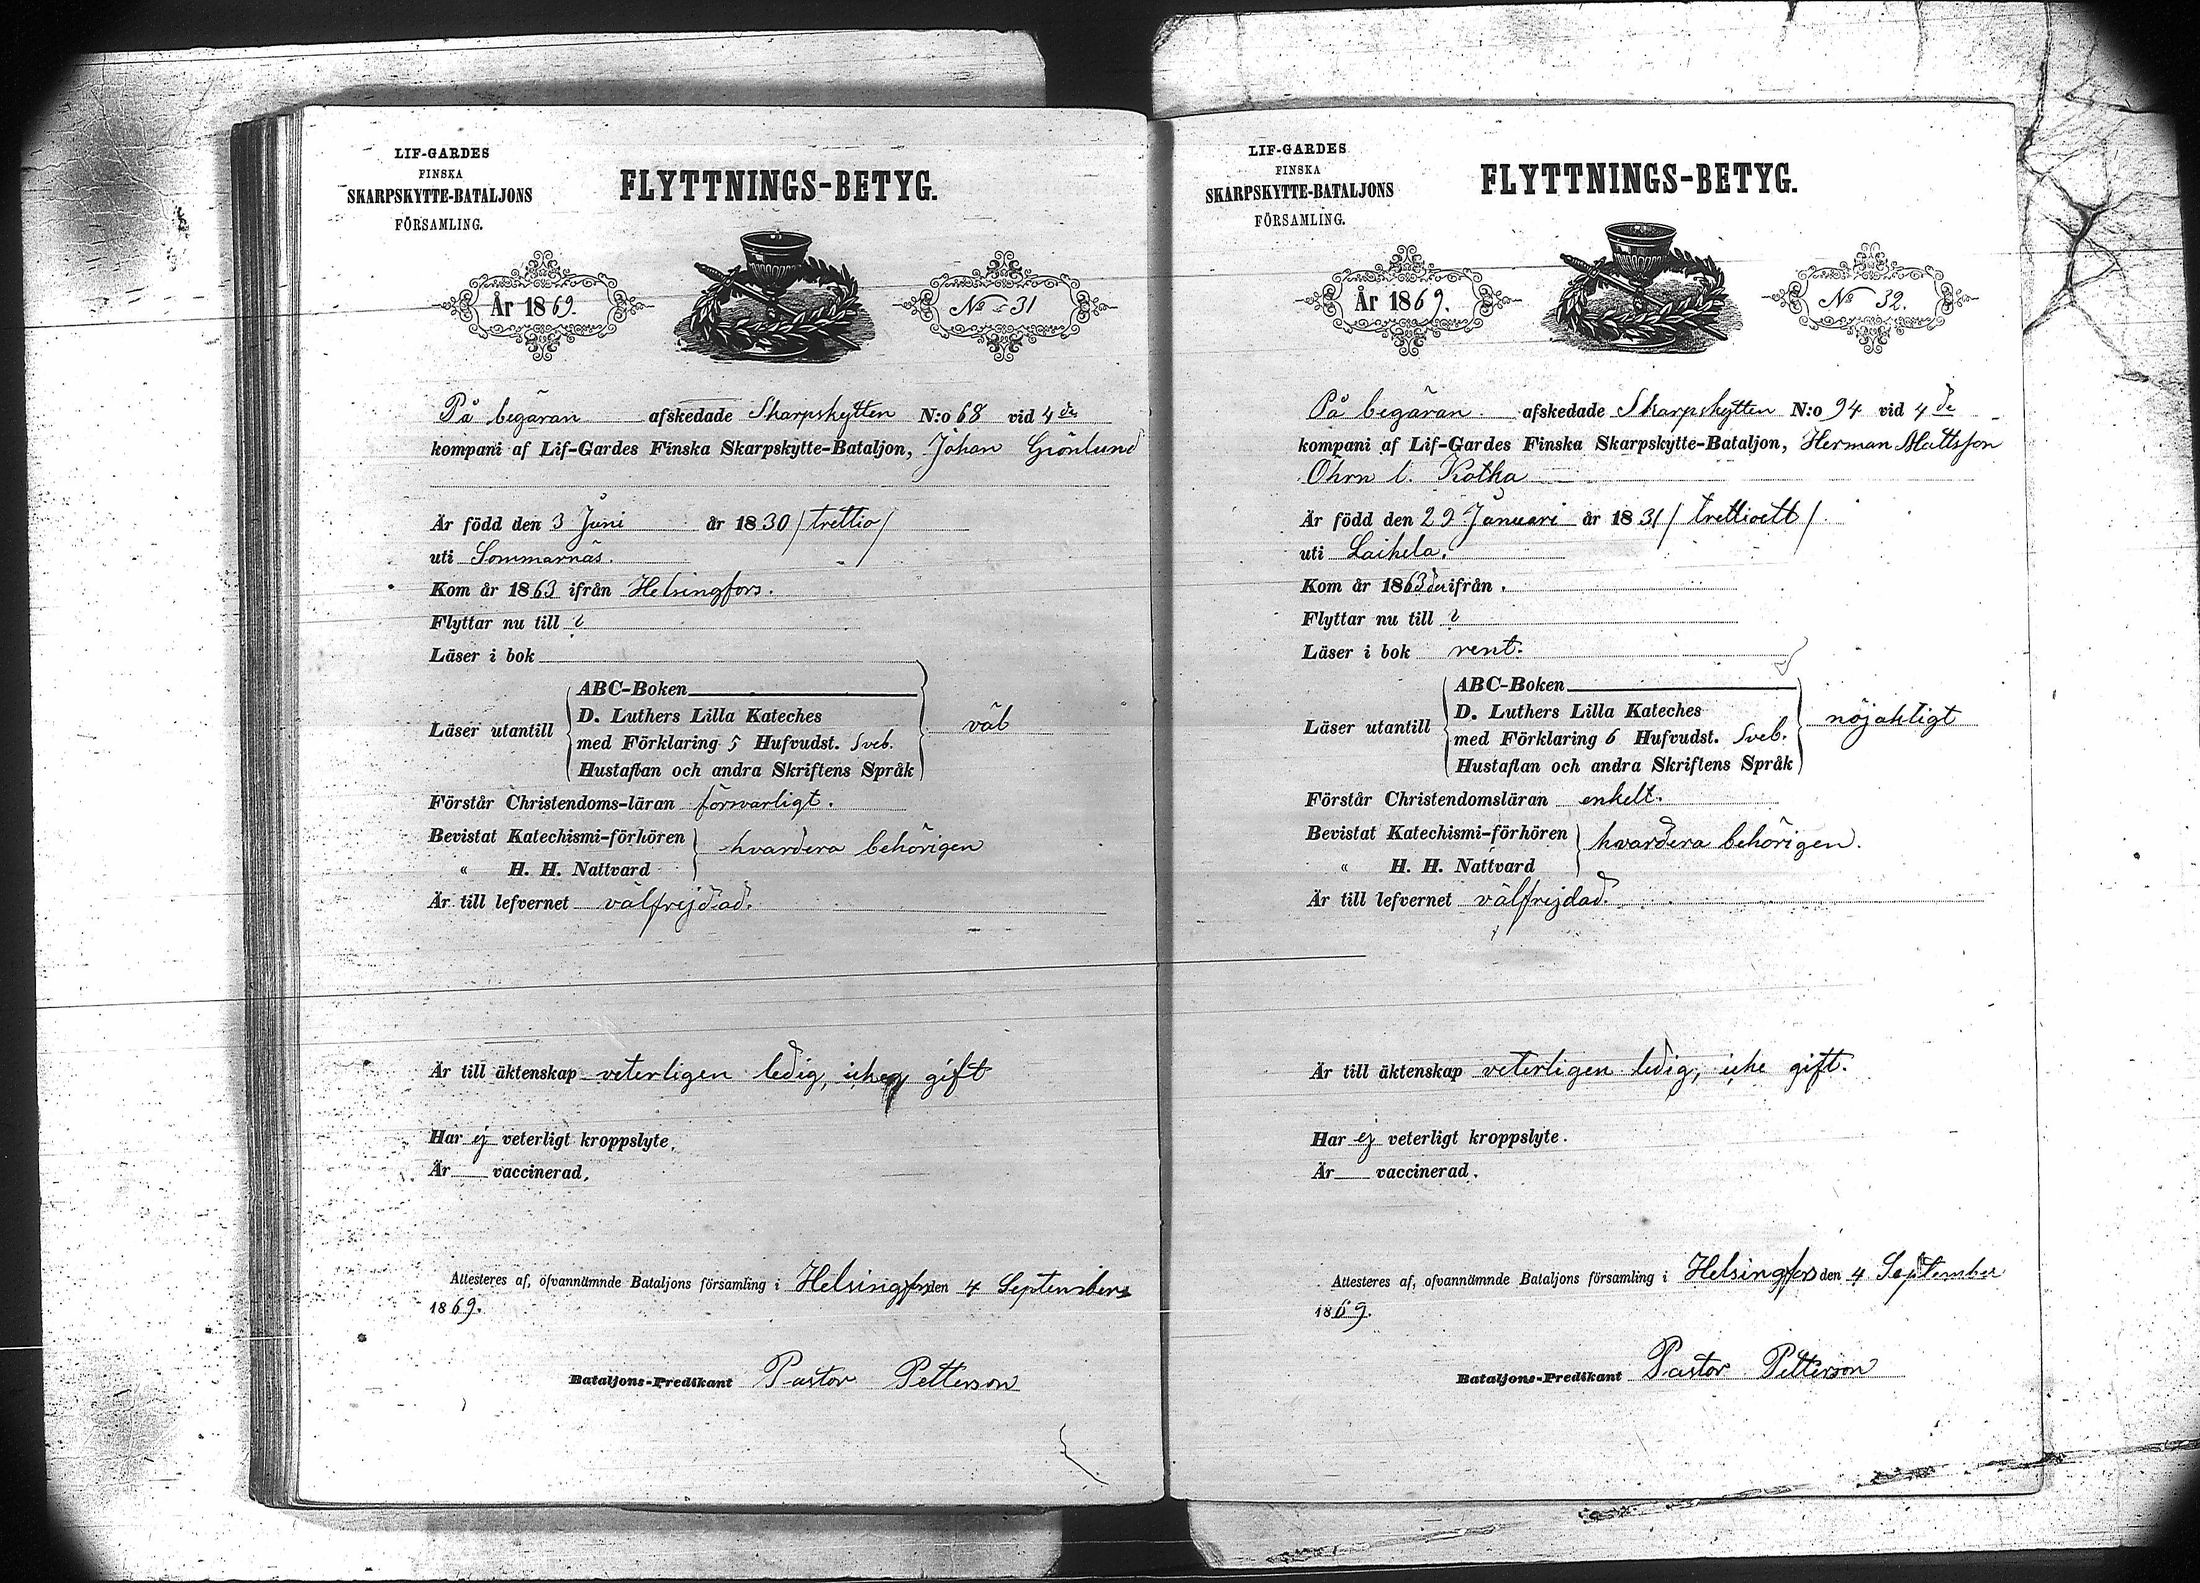 LIF-GARDES
FINSKA
SKARPSKYTTE-BATALJONS
FÖRSAMLING.
FLYTTNINGS-BETYG.
År 1869.
No 31
På begäran afskedade Skarpskytten N:o 68 vid 4de
kompani af Lif-Gardes Finska Skarpskytte-Bataljon, Johan Grönlund
Är född den 3 Juni år 1830 /trettio/
uti Sommarnäs.
Kom år 1863 ifrån Helsingfors.
Flyttar nu till ?
Läser i bok
Läser utantill
ABC-Boken
D. Luthers Lilla Kateches
med Förklaring 5 Hufvudst. Sveb.
Hustaflan och andra Skriftens Språk
väl
Förstår Christendoms-läran försvarligt.
Bevistat Katechismi-förhören
" H. H. Nattvard
hvardera behörigen
Är till lefvernet välfrejdad.
Är till äktenskap veterligen ledig, icke gift
Har ej veterligt kroppslyte.
Är vaccinerad.
Attesteres af, ofvannämnde Bataljons församling i Helsingfors den 4 September
1869.
Bataljons-Predikant Pastor Petterson
LIF-GARDES
FINSKA
SKARPSKYTTE-BATALJONS
FÖRSAMLING.
FLYTTNINGS-BETYG.
År 1869.
No 32.
På begäran afskedade Skarpskytten N:o 94 vid 4de
kompani af Lif-Gardes Finska Skarpskytte-Bataljon, Herman Mattsson
Öhrn l. Kotka
Är född den 29 Januari år 1831 /trettioett/.
uti Laihela.
Kom år 1863 derifrån.
Flyttar nu till ?
Läser i bok rent.
Läser utantill
ABC-Boken
D. Luthers Lilla Kateches
med Förklaring 6 Hufvudst. Sveb.
Hustaflan och andra Skriftens Språk
nöjaktigt
Förstår Christendomsläran enkelt.
Bevistat Katechismi-förhören
" H. H. Nattvard
hvardera behörigen.
Är till lefvernet välfrejdad.
Är till äktenskap veterligen ledig, icke gift.
Har ej veterligt kroppslyte.
Är vaccinerad.
Attesteres af, ofvannämnde Bataljons församling i Helsingfors den 4 September
1869.
Bataljons-Predikant Pastor Petterson